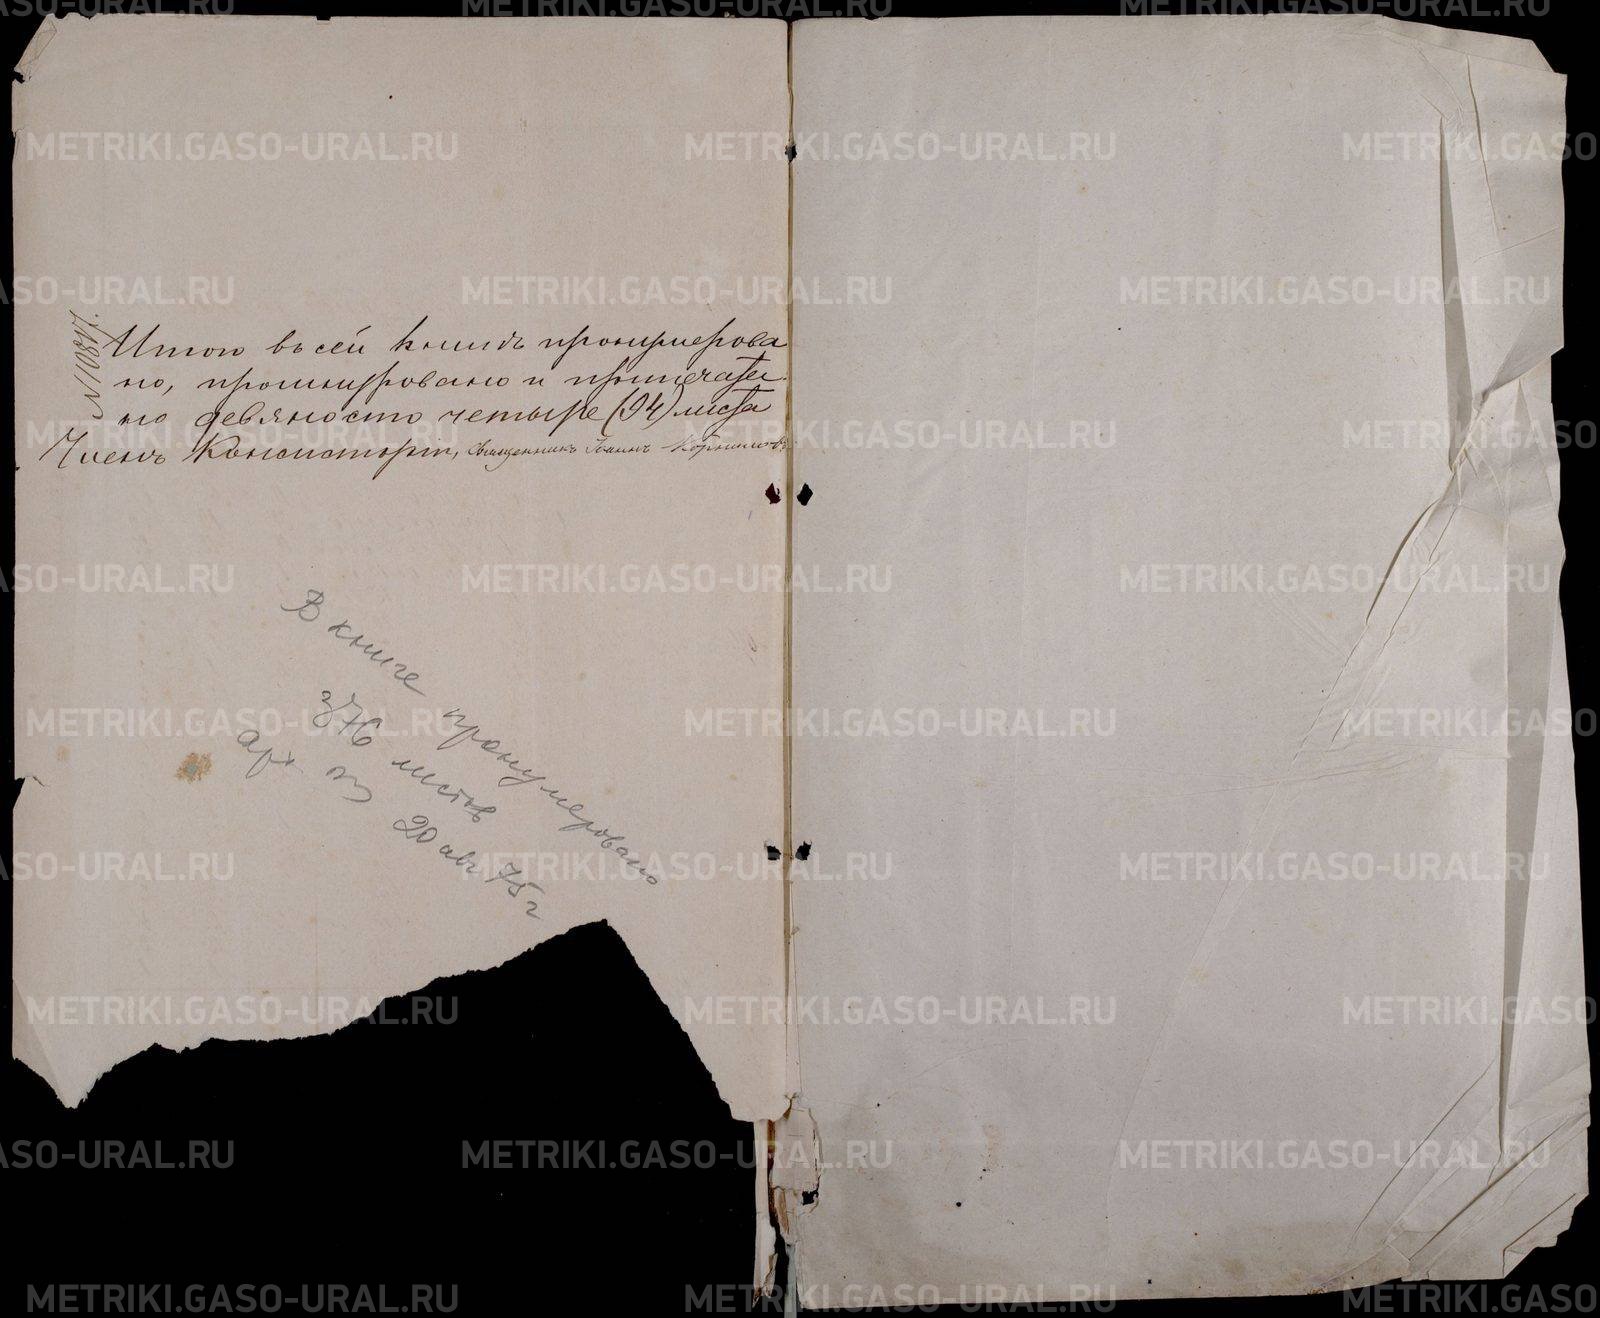 № 10847.
Итого въ сей книгѣ пронумерова
но, прошнуровано и припечата
но девяносто четыре (94) листа
Членъ Консисторіи, Священникъ Іоаннъ Корниловъ
В книге пронумеровано
376 листов
арх
20 авг 75 г
METRIKI.GASO-URAL.RU